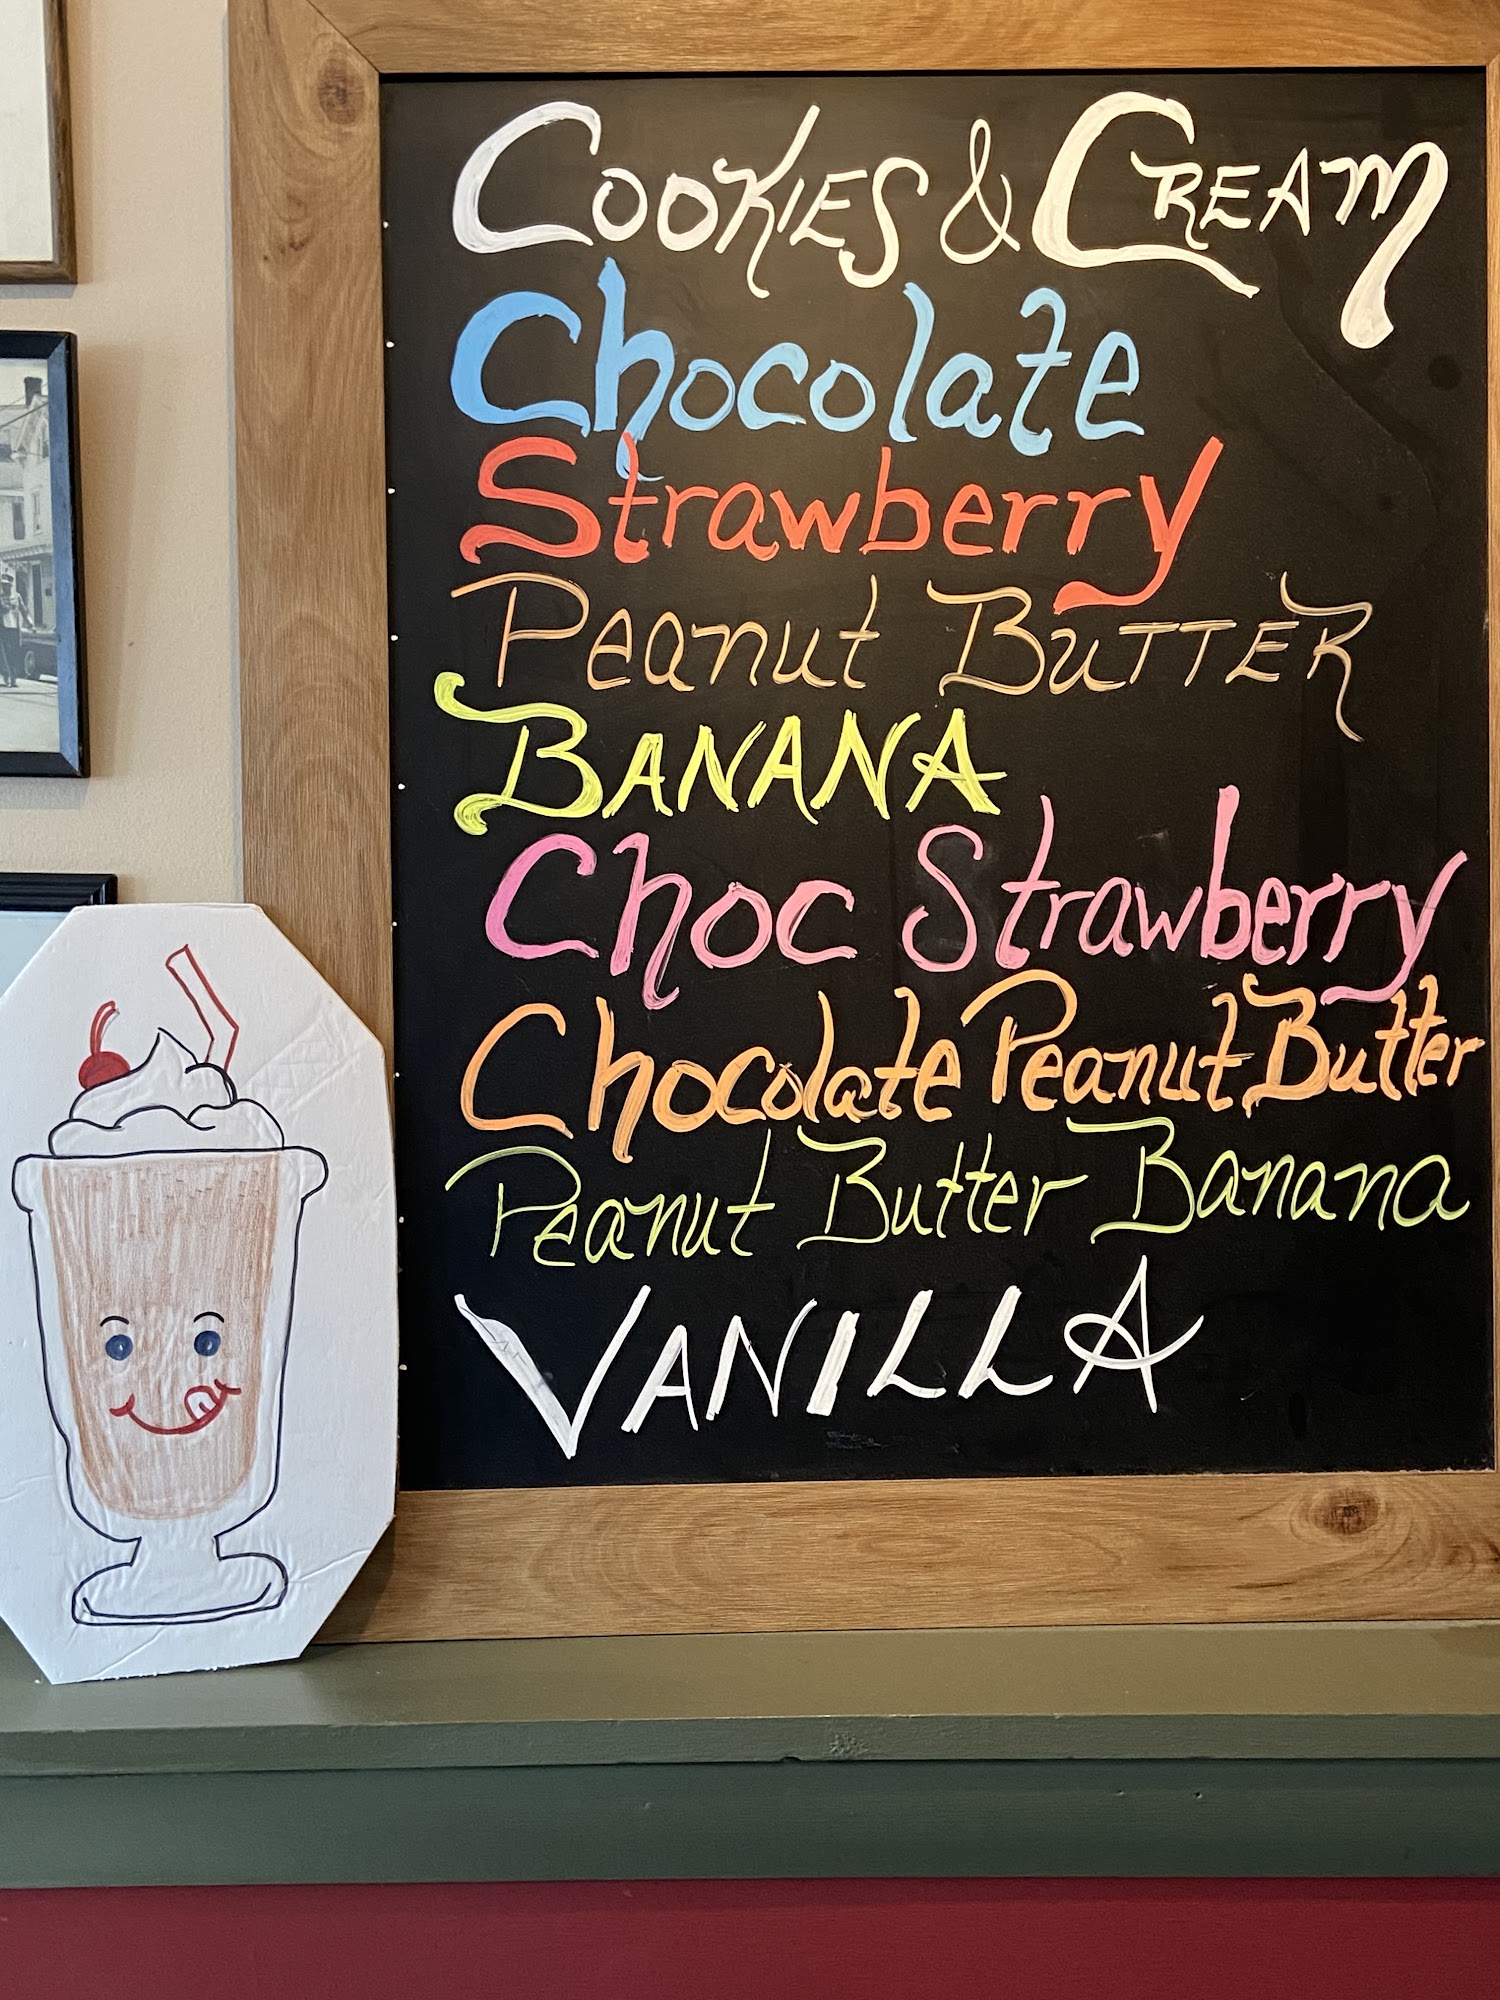 Cookies & Cream
Chocolate
Strawberry
Peanut Butter
Banana
Choc Strawberry
Chocolate Peanut Butter
Peanut Butter Banana
Vanilla